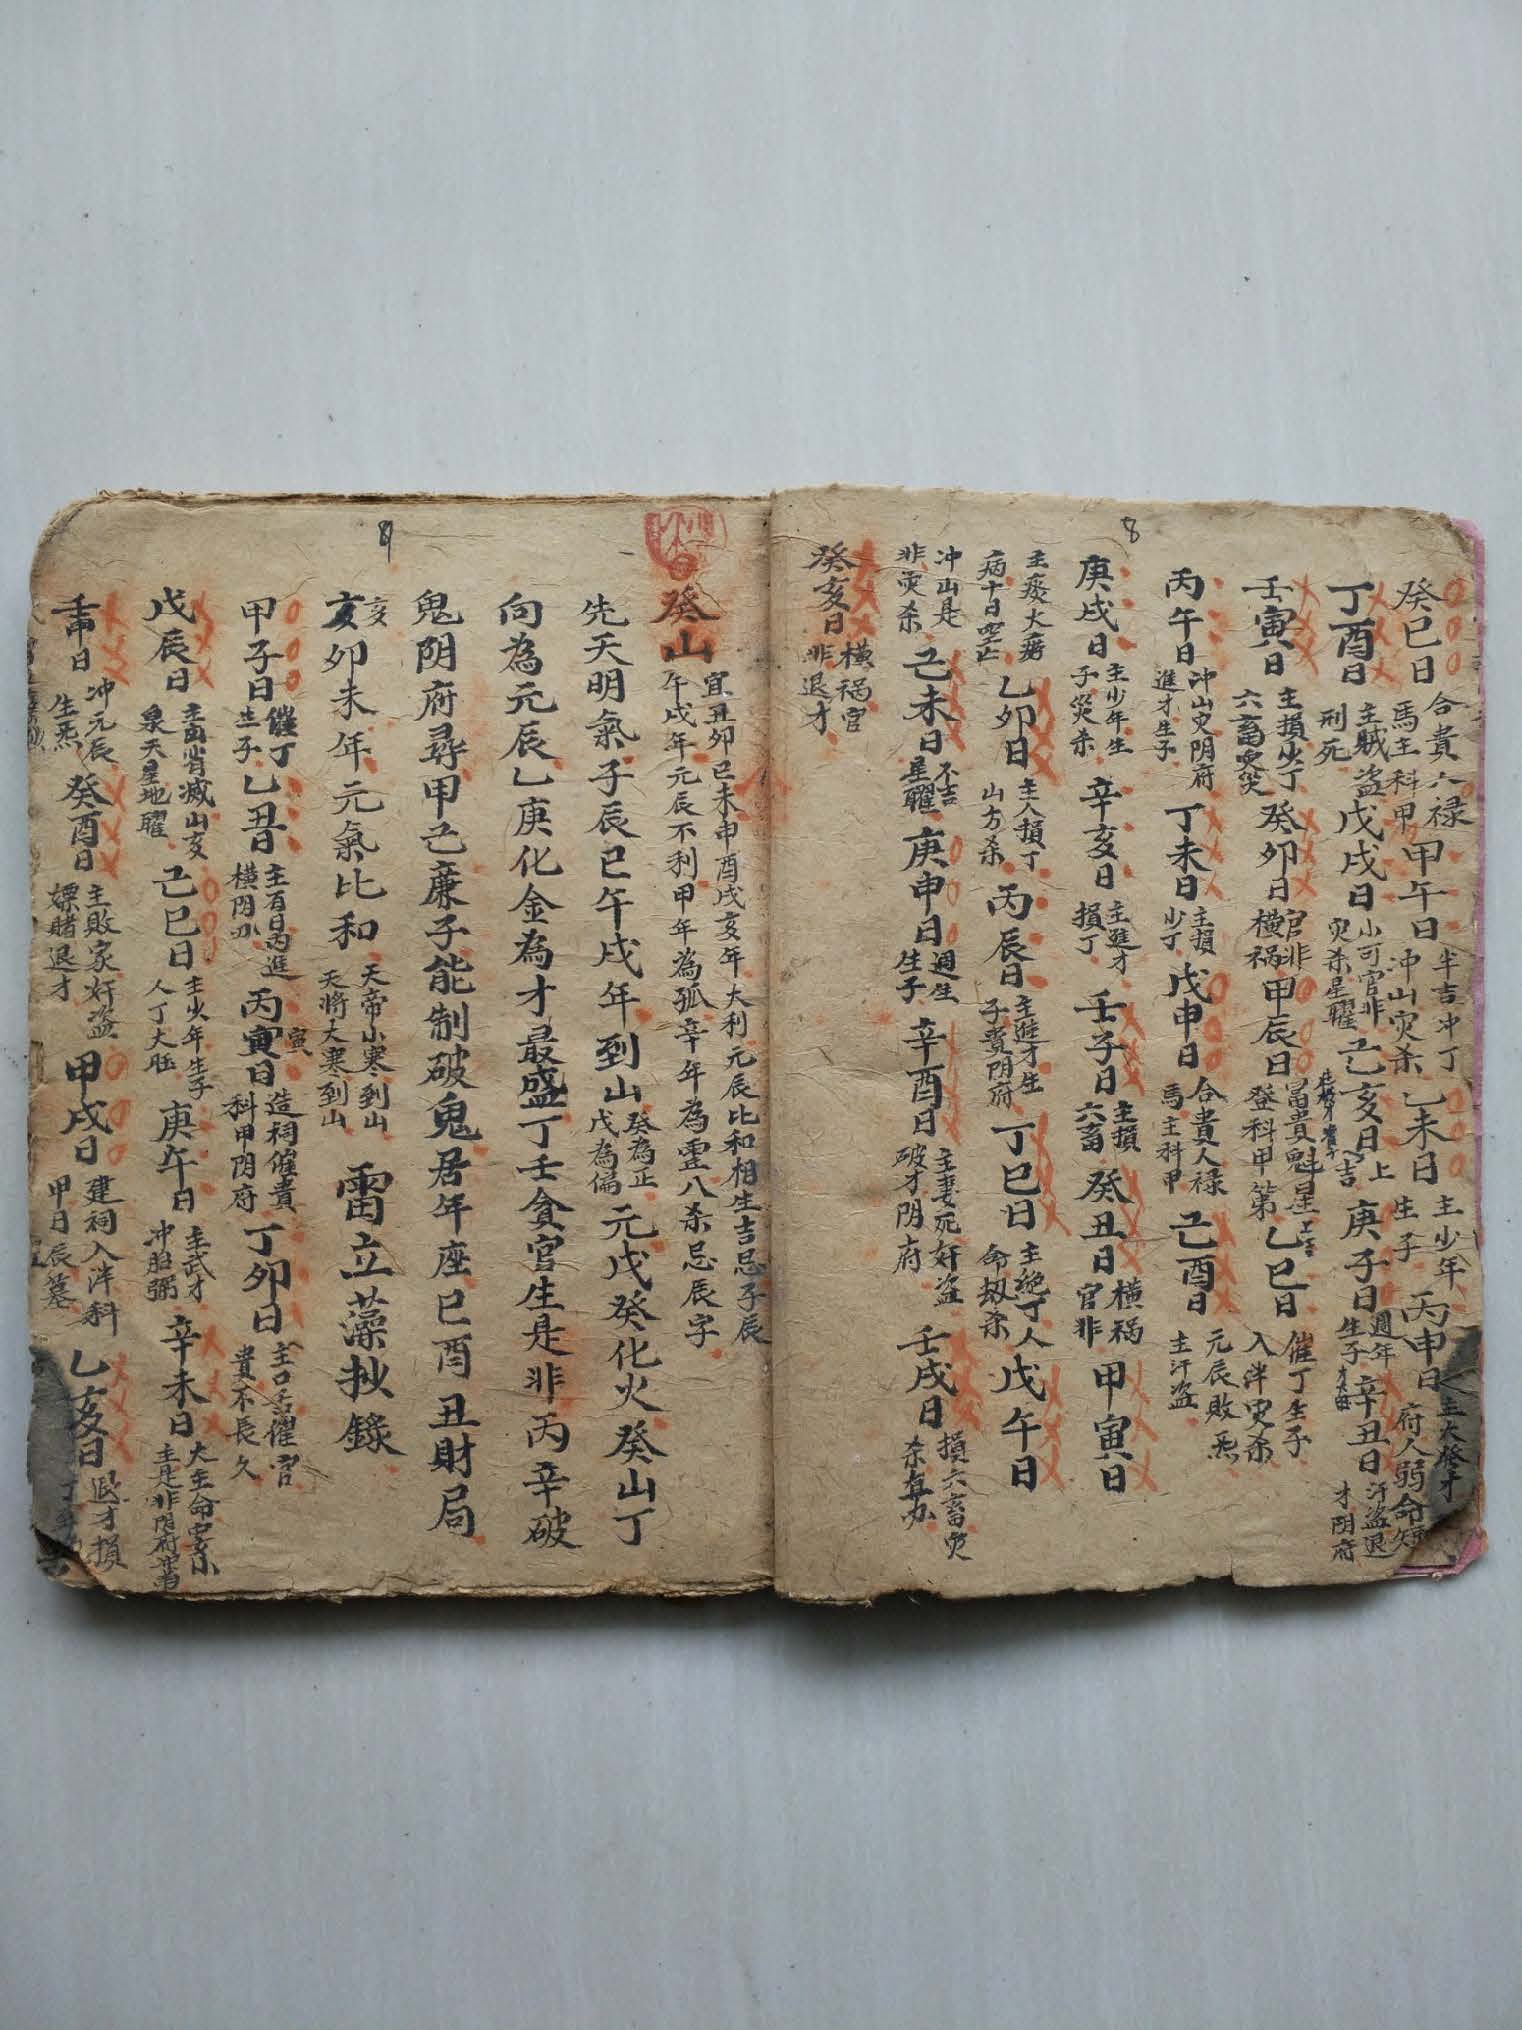 8
癸巳日 合貴人禄馬主科甲 甲午日 半吉冲丁冲山灾杀 乙未日 主少年生子 丙申日 府人弱命短 主大發才
丁酉日 主賊盗刑死 戊戌日 小可官非灾杀星曜 己亥日 上吉 庚子日 週年生子 辛丑日 汗盗退才阴府
壬寅日 主損少丁六畜灾 癸卯日 官非横祸 甲辰日 冨貴魁星登科甲第 乙巳日 催丁生子入泮灾杀
丙午日 冲山灾阴府進才生子 丁未日 主損少丁 戊申日 合貴人禄馬主科甲 己酉日 元辰敗炁主汗盗
庚戌日 主少年生子灾杀 辛亥日 主進才損丁 壬子日 主損六畜 癸丑日 横祸官非 甲寅日
主痰火痨病十日空亡 乙卯日 主人損丁山方杀 丙辰日 主進才生子貴阴府 丁巳日 主绝丁人命劫杀 戊午日
冲山是非灾杀 己未日 不吉星曜 庚申日 週生生子 辛酉日 主妻死奸盗破才阴府 壬戌日 損六畜灾杀
癸亥日 横祸官非退才
9
癸山 宜丑卯巳未申酉戌亥年大利元辰比和相生吉忌子辰午戌年元辰不利甲年為孤辛年為虚八杀忌辰字
先天明氣子辰巳午戌年到山 癸為正戊為偏 元戊癸化火癸山丁
向為元辰乙庚化金為才最盛丁壬貪官生是非丙辛破
鬼阴府尋甲己廉子能制破鬼居年座巳酉丑財局
亥卯未年元氣比和 天帝小寒到山天將大寒到山 雷立藻抄錄
甲子日 催丁生子 乙丑日 主有日丙進横阴 丙寅日 造祠催貴科甲阴府 丁卯日 主口舌催官貴不長久
戊辰日 主畜消滅山亥泉天星地曜 己巳日 主火年生子人丁大旺 庚午日 主武才冲胎弱 辛未日 大主命主是非阴府
壬申日 冲元辰生炁 癸酉日 主敗家奸盗嫖賭退才 甲戌日 建祠入泮科甲日辰墓 乙亥日 退才損丁